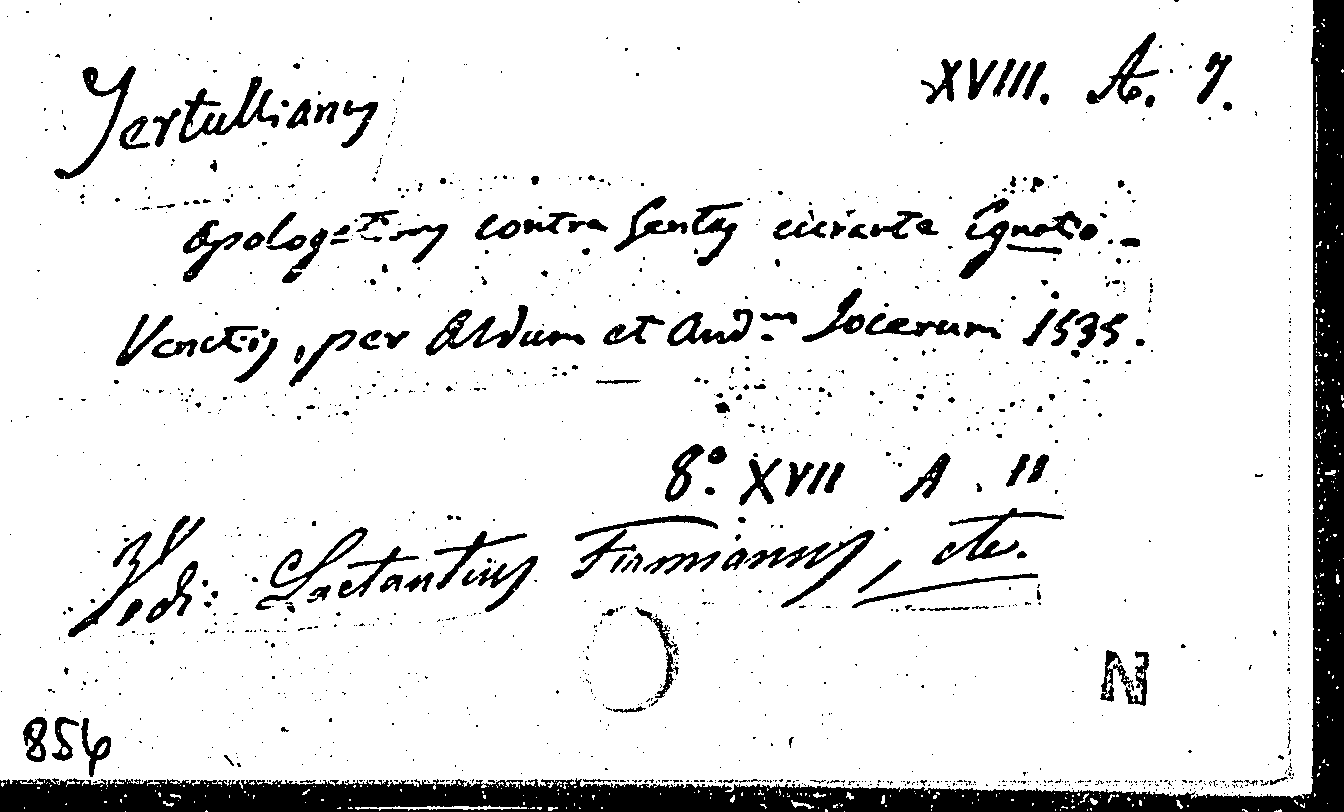 Tertullianus XVIII. A. 7.
Apologeticus contra Gentes curante Egnatio.-
Venetijs, per Aldum et And.m Socerum 1535.
8.° XVII A. 11
Vedi: Lactantius Firmianus, etc.
N
856